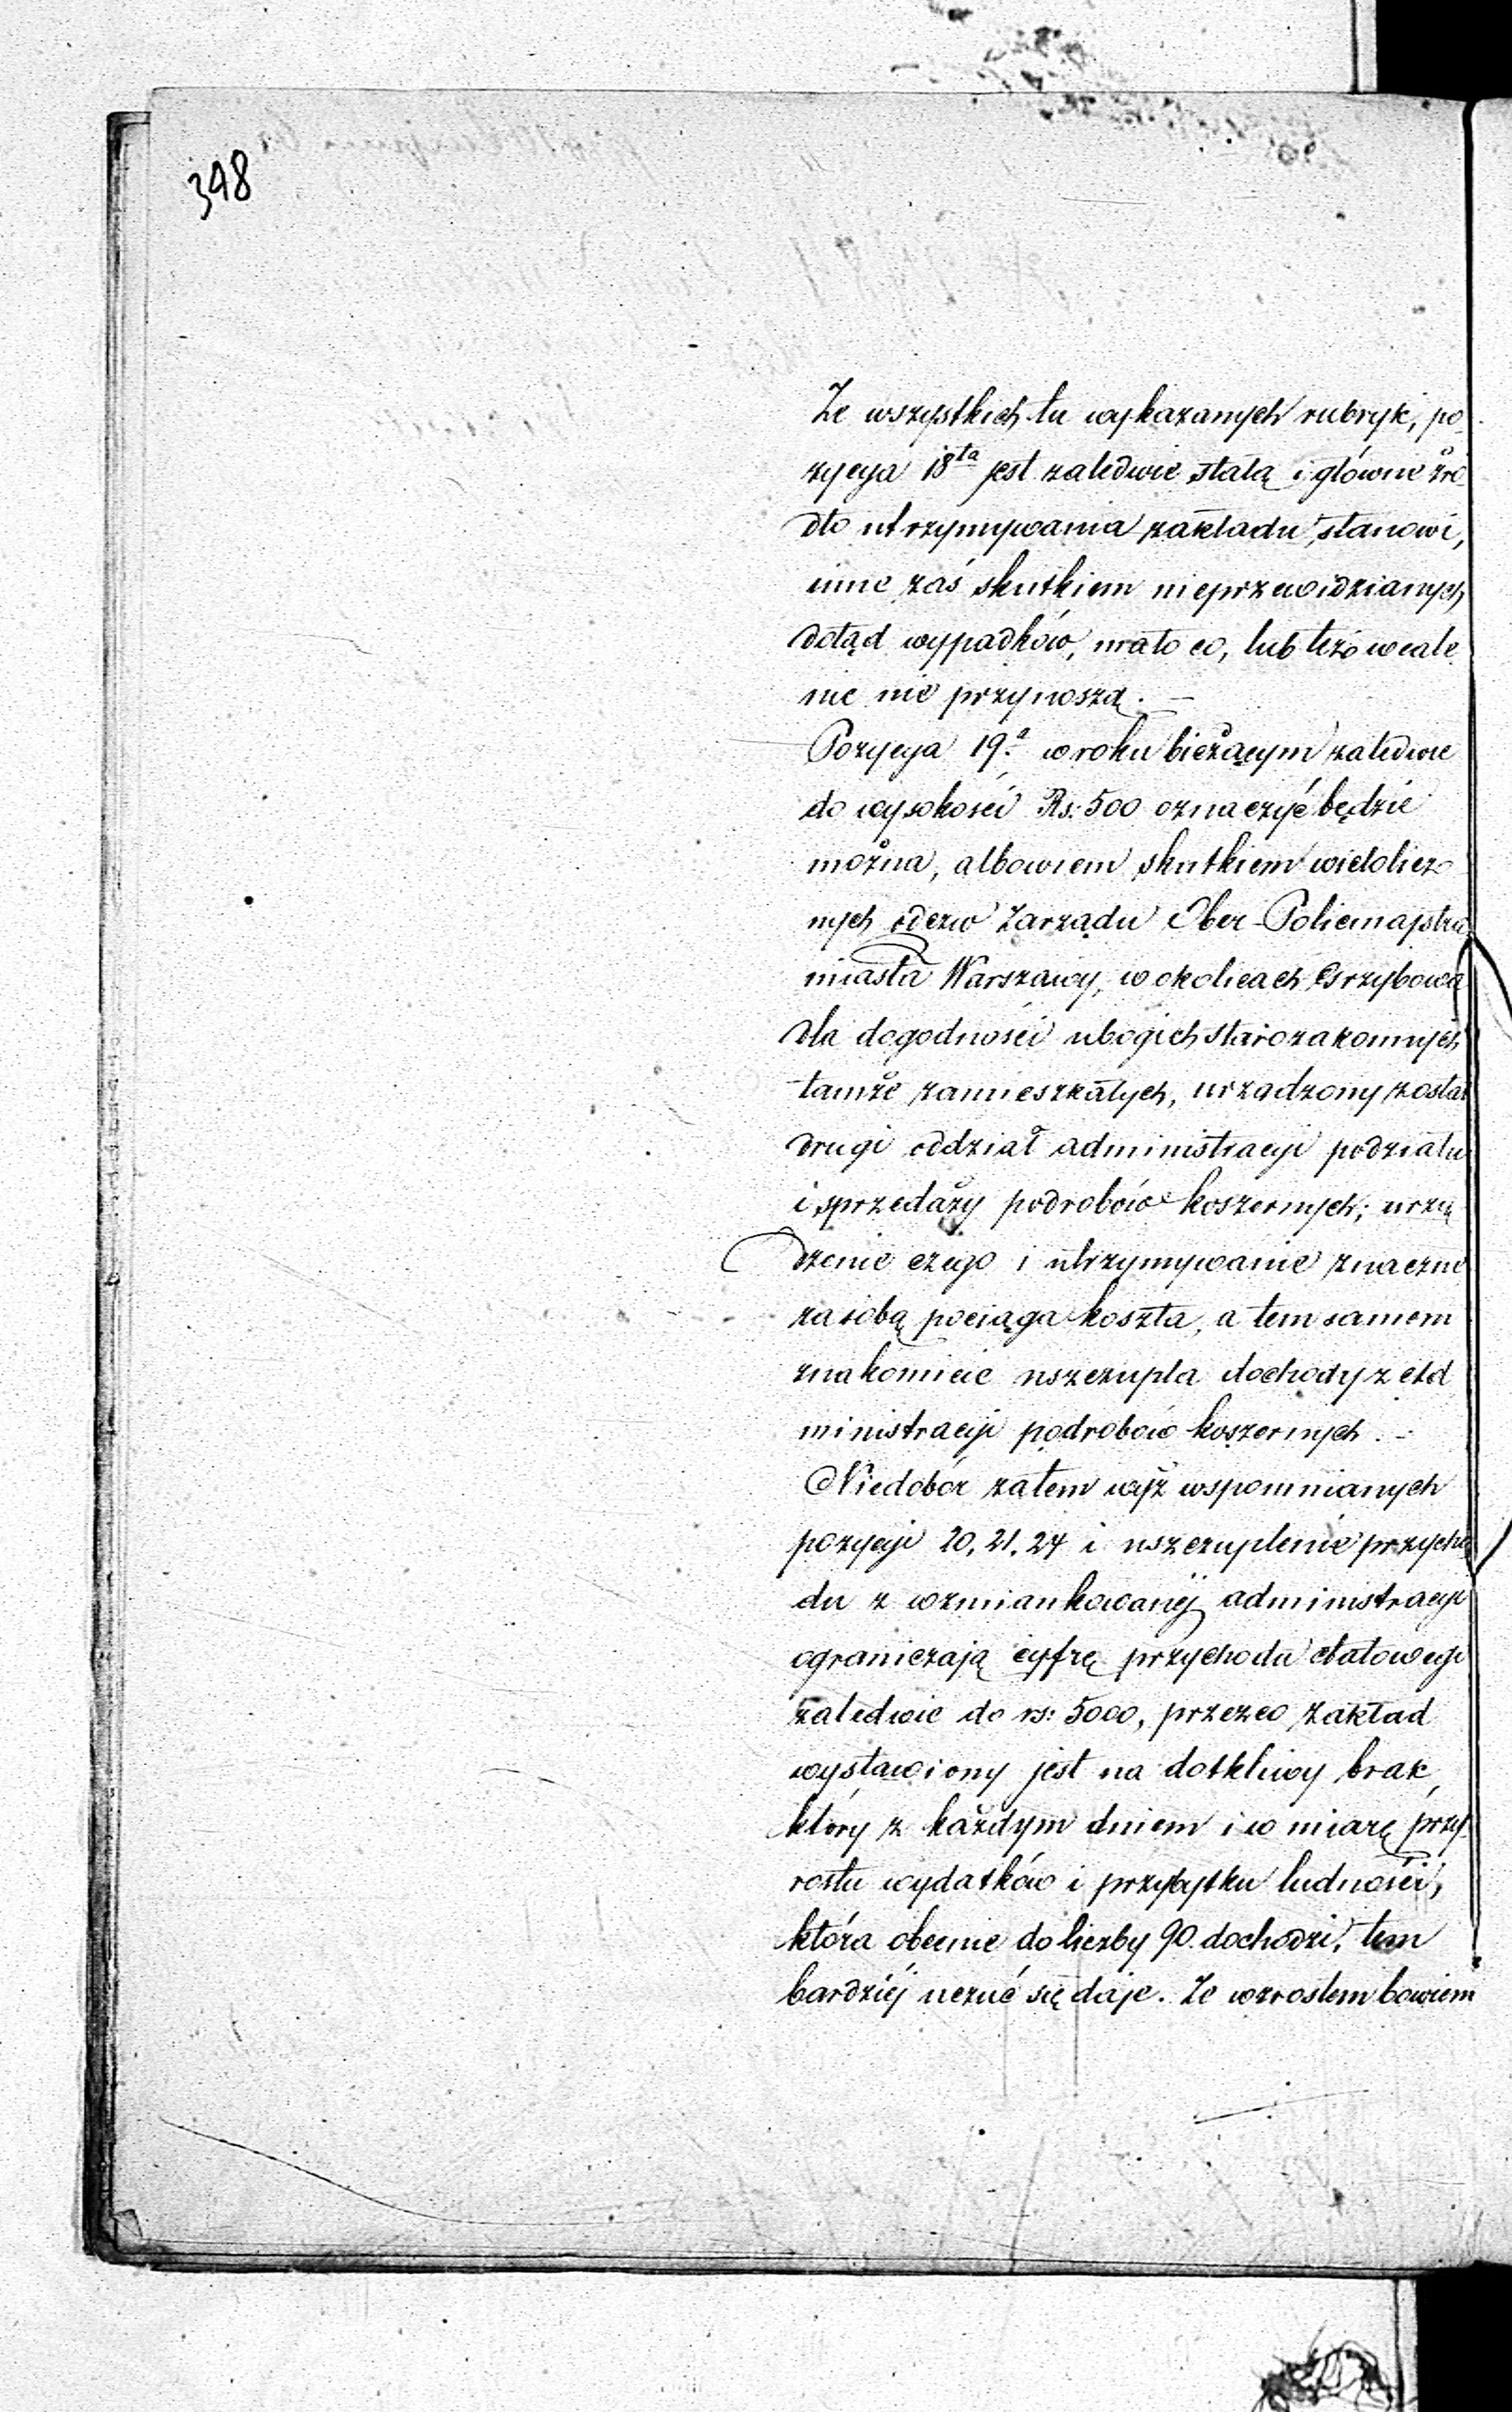 348
Ze wszystkich tu wykazanych rubryk, po-
zycya 18ta jest zaledwie stałą i główne źró-
dło utrzymywania zakładu stanowi,
inne zaś skutkiem nieprzewidzianych
dotąd wypadków, mało co, lub też wcale
nic nie przynoszą. —
Pozycya 19a w roku bieżącym zaledwie
do wysokości Rs: 500 oznaczyć będzie
można, albowiem skutkiem wielolicz-
nych odezw Zarządu Ober-Policmajstra
miasta Warszawy, w okolicach Grzybowa
dla dogodności ubogich starozakonnych
tamże zamieszkałych, urządzony został
drugi oddział administracyi podziału
i sprzedaży podrobów koszernych; urzą-
dzenie czego i utrzymywanie znaczne
za sobą pociąga koszta, a tem samem
znakomicie uszczupla dochody z Ad
ministracyi podrobów koszernych. —
Niedobór zatem wyż wspomnianych
pozycyi 20, 21, 24 i uszczuplenie przycho
du z wzmiankowanéj administracyi
ograniczają cyfrę przychodu etatowego
zaledwie do rs: 5000, przezco Zakład
wystawiony jest na dotkliwy brak,
który z każdym dniem i w miarę przy-
rostu wydatków i przybytku ludności,
która obecnie do liczby 90 dochodzi, tem
bardziéj uczuć się daje. Ze wzrostem bowiem